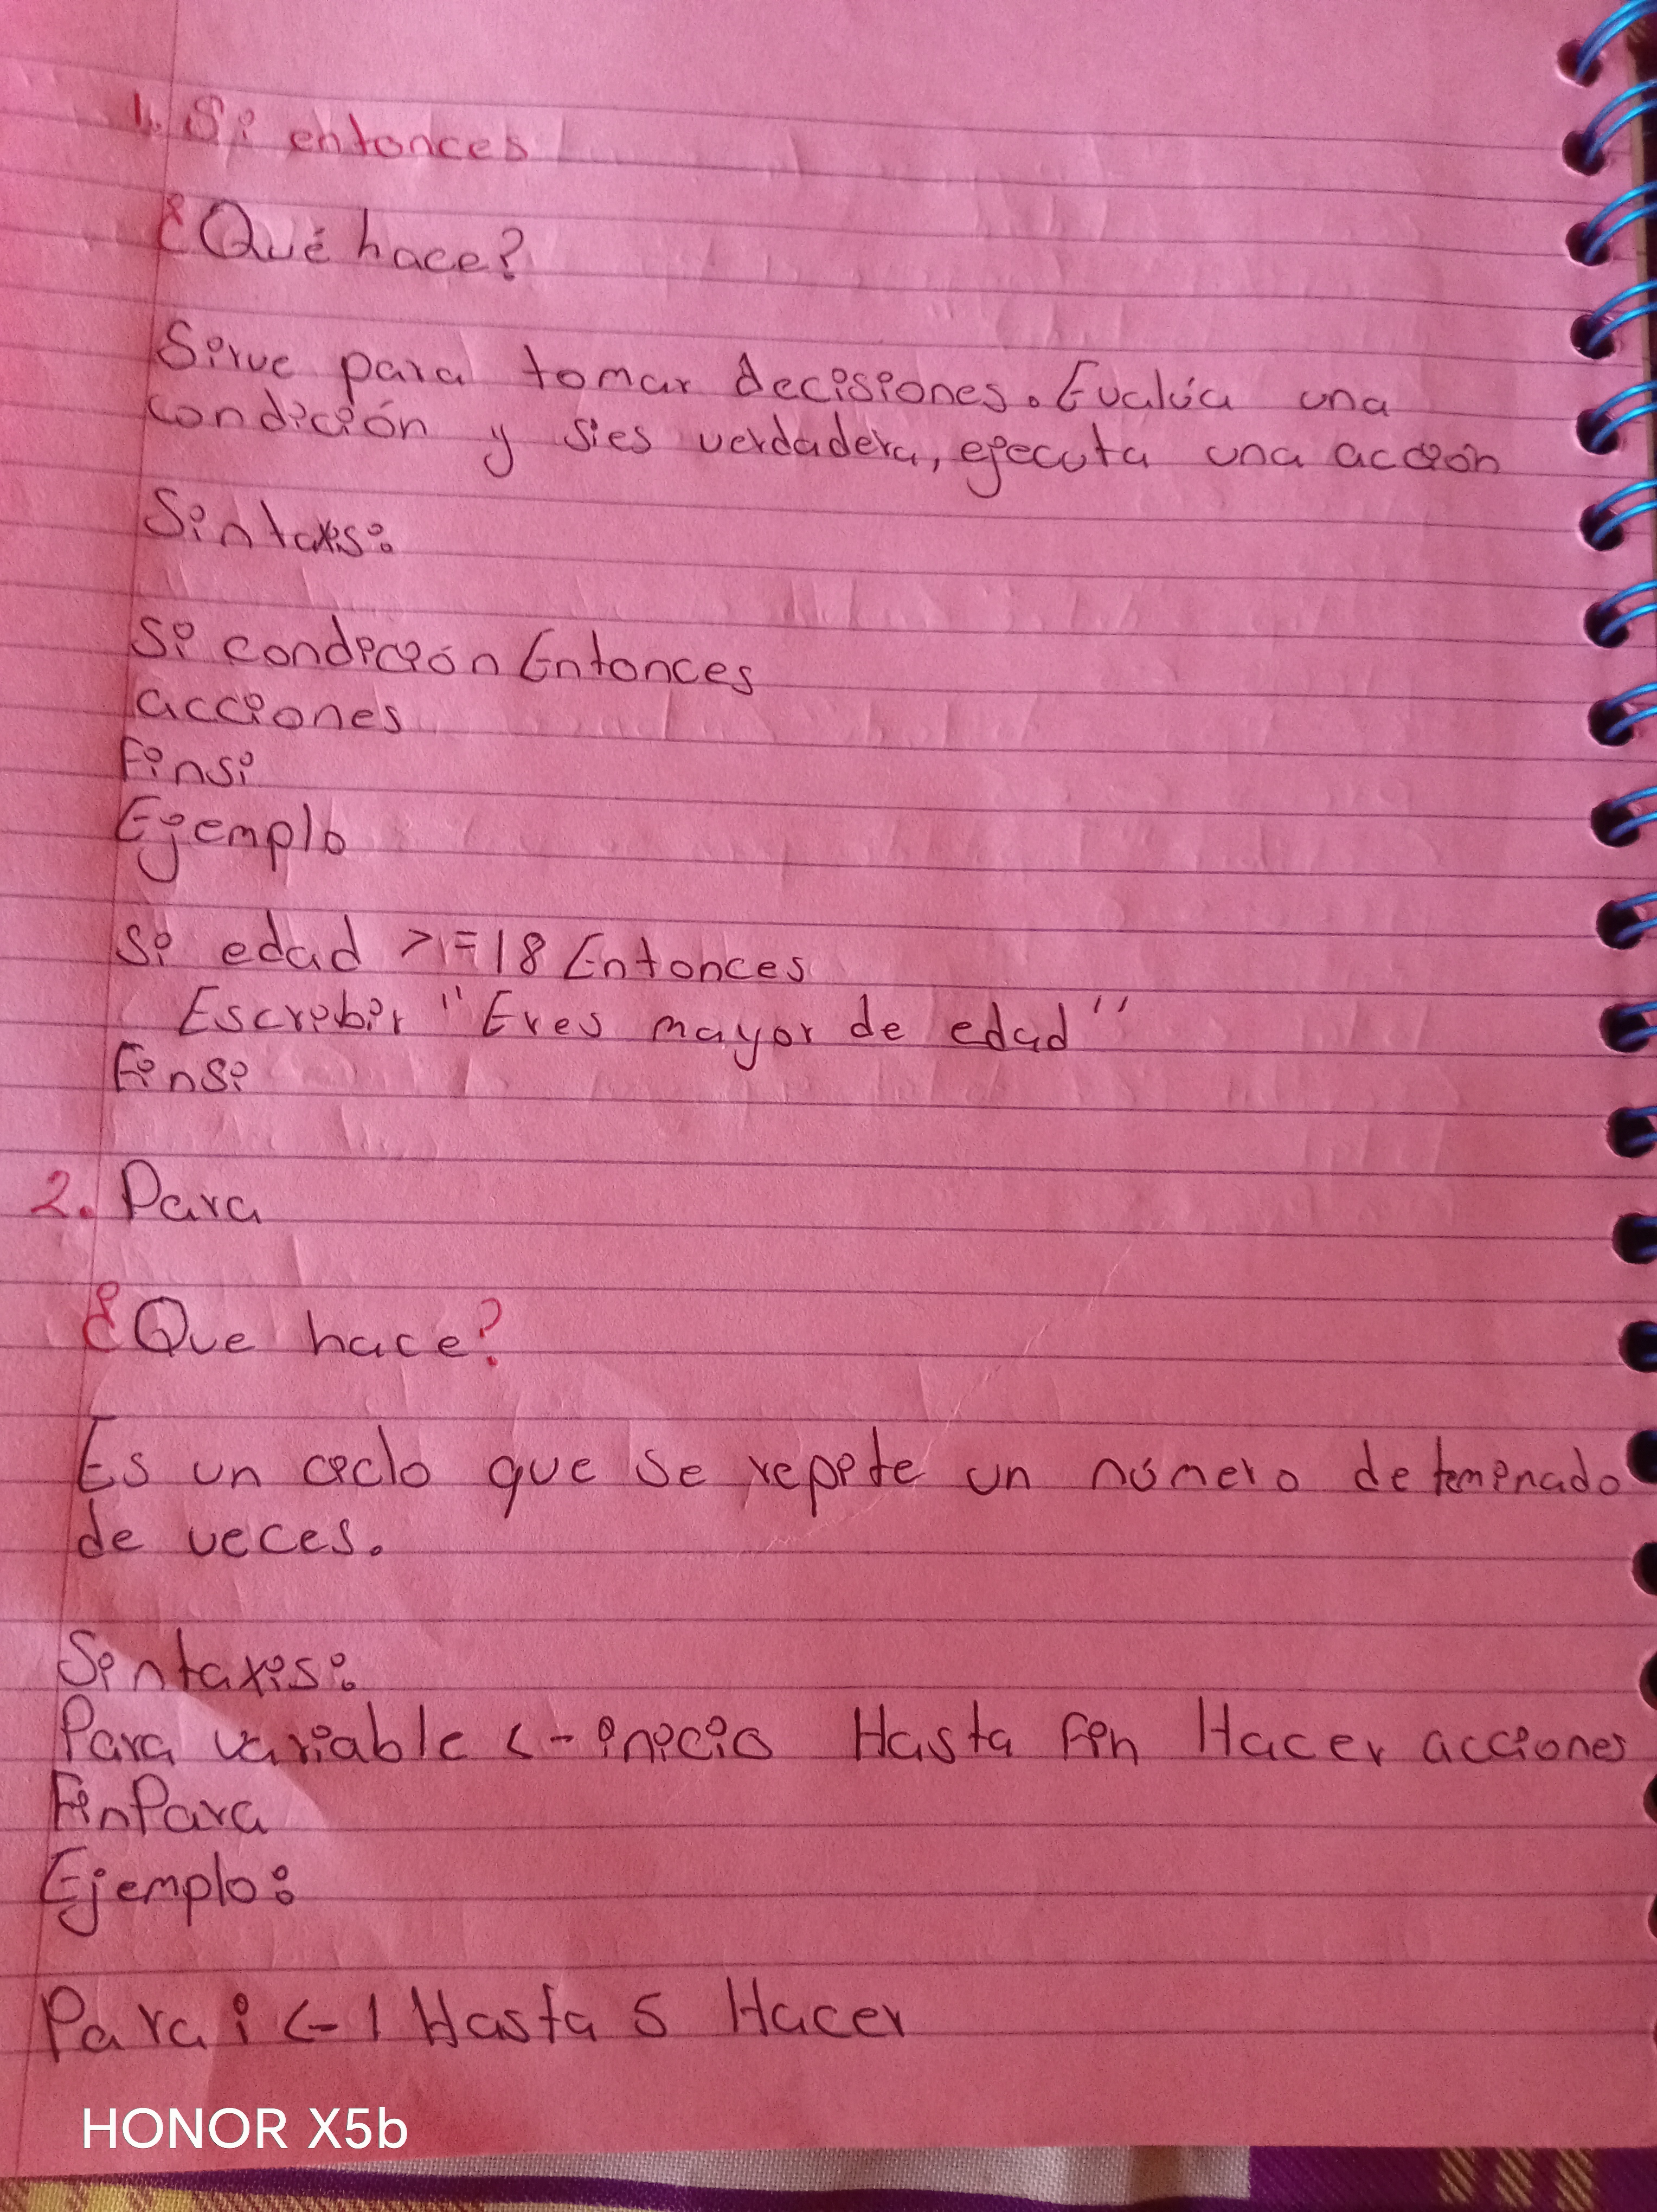 1. Si entonces
¿Qué hace?
Sirve para tomar decisiones. Evalúa una
condición y si es verdadera, ejecuta una acción
Sintaxis:
Si condición Entonces
acciones
Finsi
Ejemplo
Si edad >=18 Entonces
Escribir "Eres mayor de edad"
Finsi
2. Para
¿Que hace?
Es un ciclo que se repite un número deteminado
de veces.
Sintaxis:
Para variable <- inicio Hasta fin Hacer acciones
FinPara
Ejemplo:
Para i <- 1 Hasta 5 Hacer
HONOR X5b